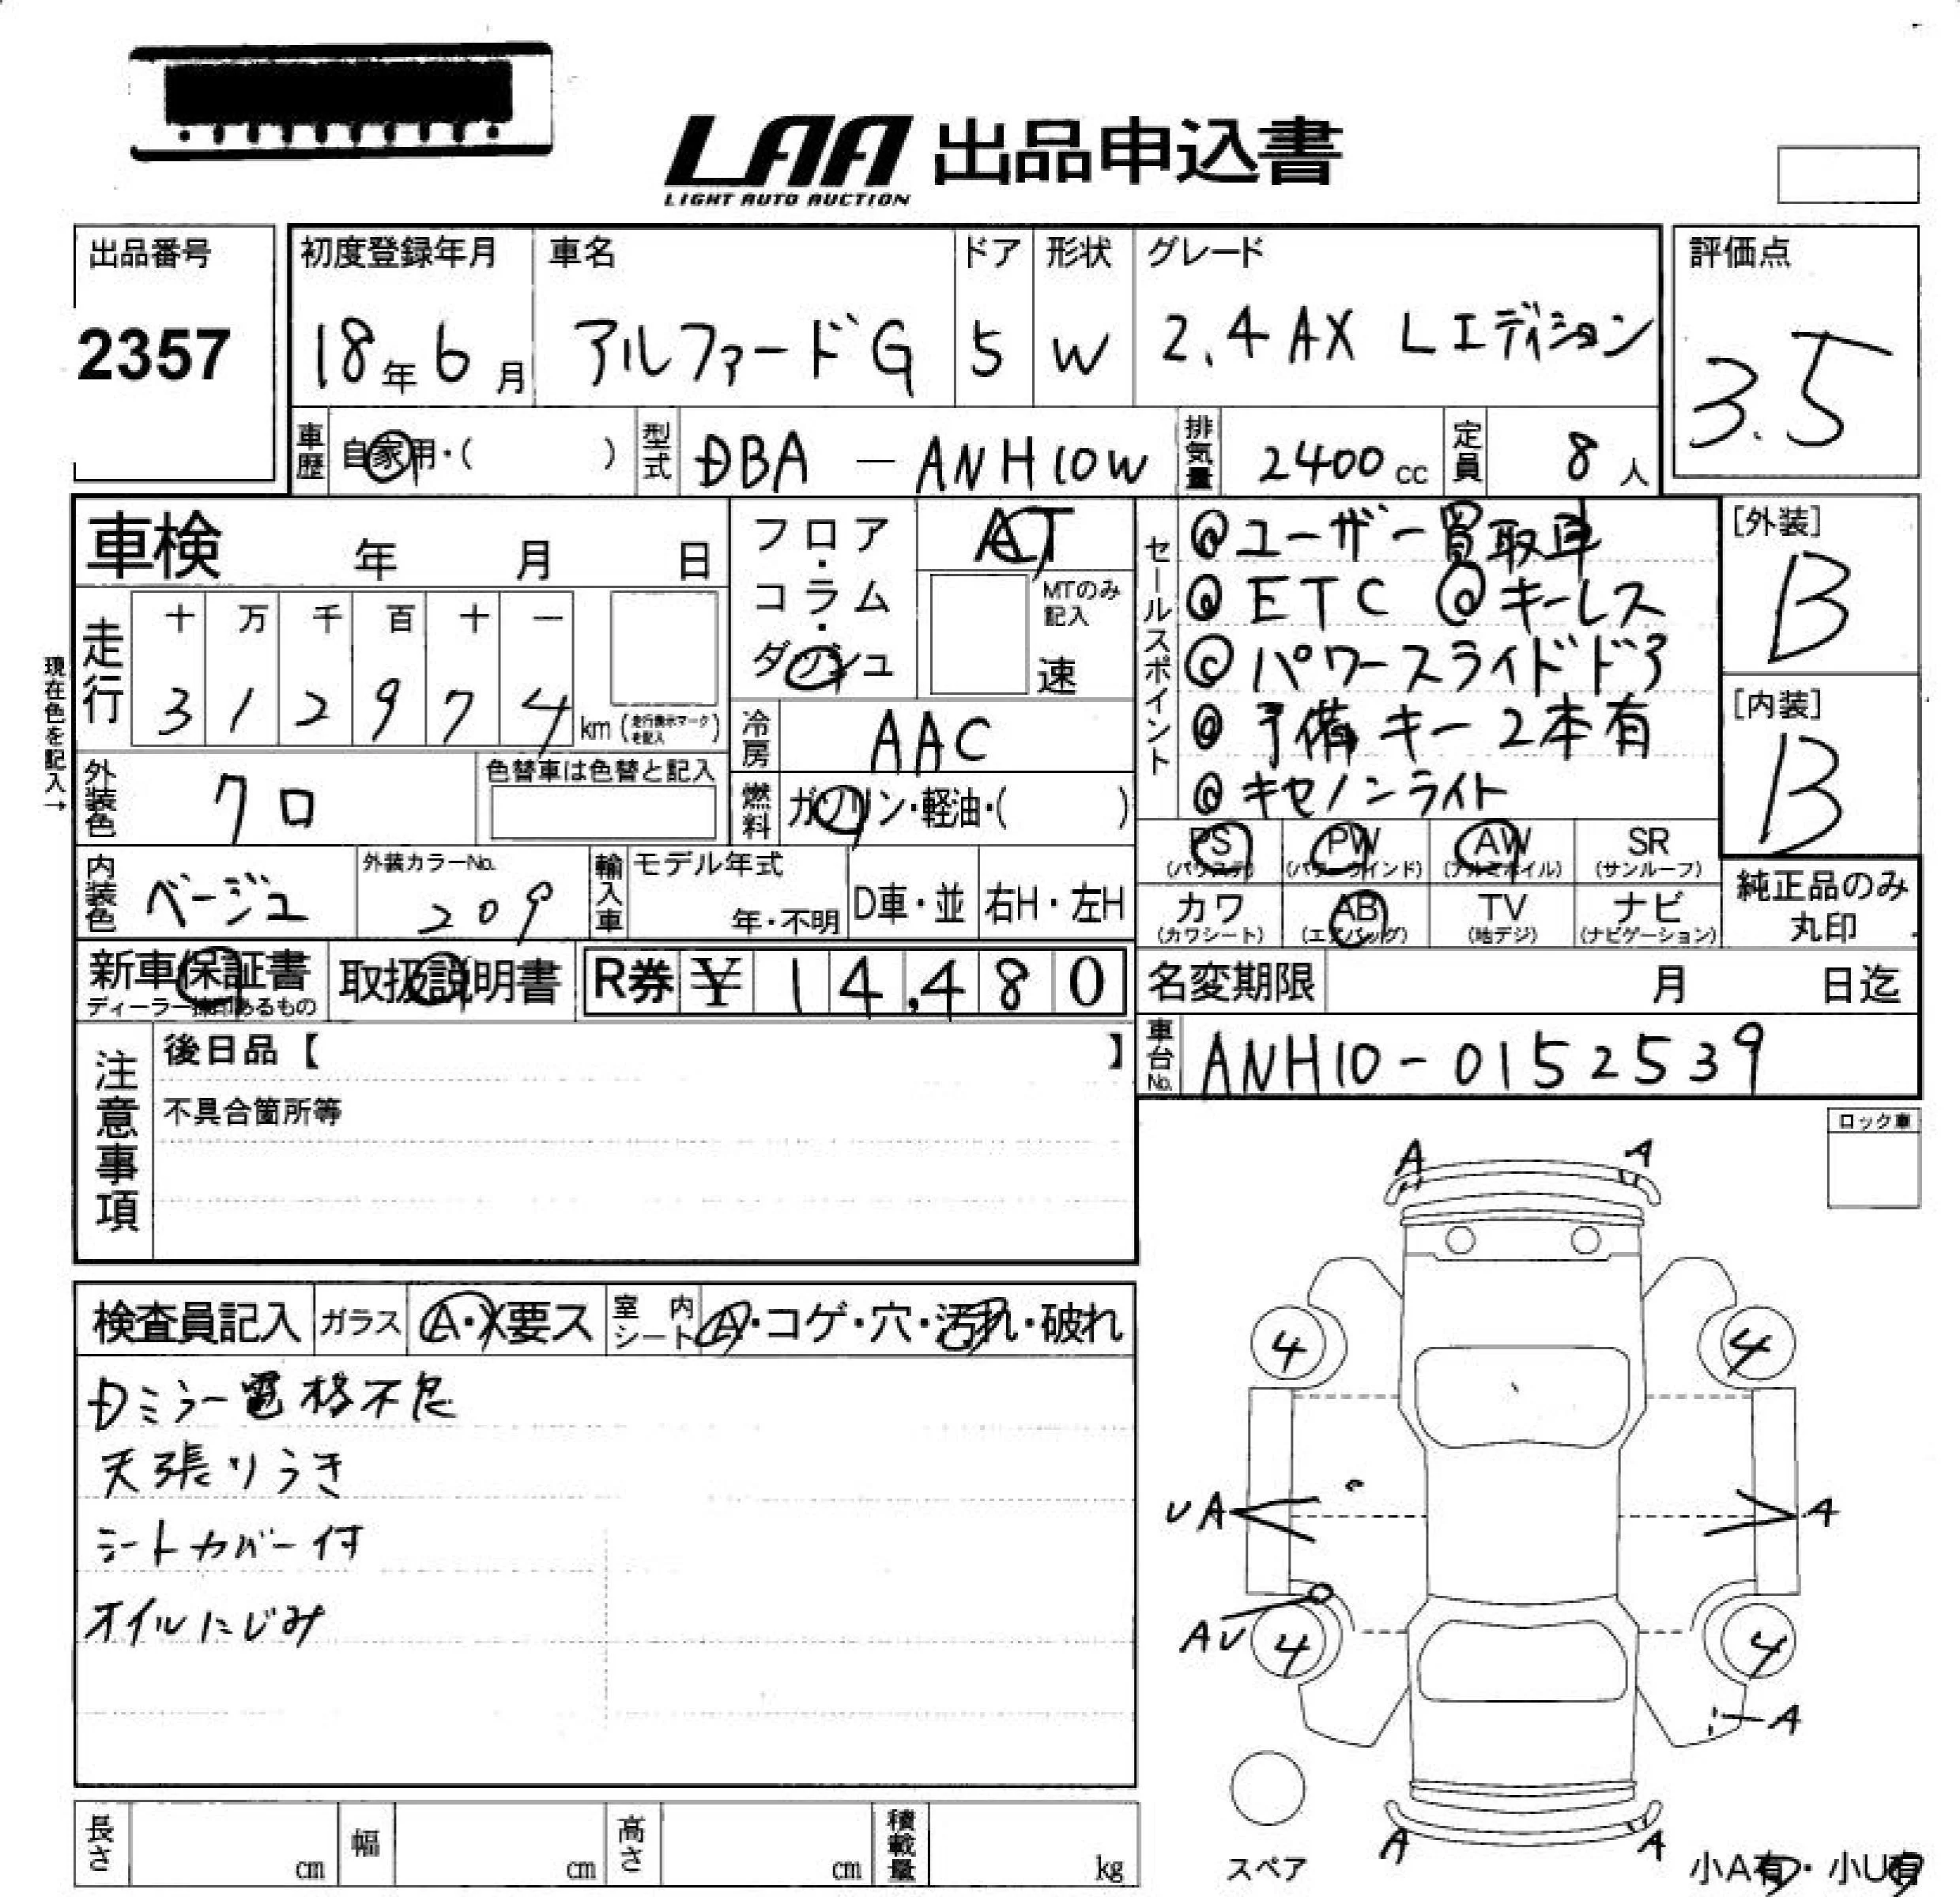 LAA 出品申込書
LIGHT AUTO AUCTION
出品番号
2357
初度登録年月
18年6月
車名
アルファードG
ドア
5
形状
W
グレード
2.4 AX Lエディション
評価点
3.5
車歴
自家用・( )
型式
DBA - ANH10W
排気量
2400cc
定員
8人
車検 年 月 日
フロア・コラム・ダッシュ
AT
MTのみ記入
速
セールスポイント
@ユーザー買取車
@ETC @キーレス
@パワースライドドア
@予備キー2本有
@キセノンライト
[外装]
B
[内装]
B
現在色を記入→
走行
十 万 千 百 十 一
3 1 2 9 7 4 km (走行表示マークを記入)
冷房
AAC
外装色
クロ
色替車は色替と記入
燃料
ガソリン・軽油・( )
PS (パワステ)
PW (パワーウインド)
AW (アルミホイル)
SR (サンルーフ)
カワ (カワシート)
AB (エアバッグ)
TV (地デジ)
ナビ (ナビゲーション)
純正品のみ丸印
内装色
ベージュ
外装カラーNo.
209
輸入車
モデル年式
年・不明
D車・並
右H・左H
新車保証書
ディーラー捺印あるもの
取扱説明書
R券 ¥ 14,480
名変期限 月 日迄
車台No.
ANH10-0152539
注意事項
後日品【 】
不具合箇所等
ロック車
検査員記入
ガラス
A・X要ス
室内シート
A・コゲ・穴・汚れ・破れ
Dミラー電格不良
天張りうき
シートカバー付
オイルにじみ
A A
4 4
UA A
AU 4 4
A
A A
スペア
小A有・小U有
長さ cm
幅 cm
高さ cm
積載量 kg